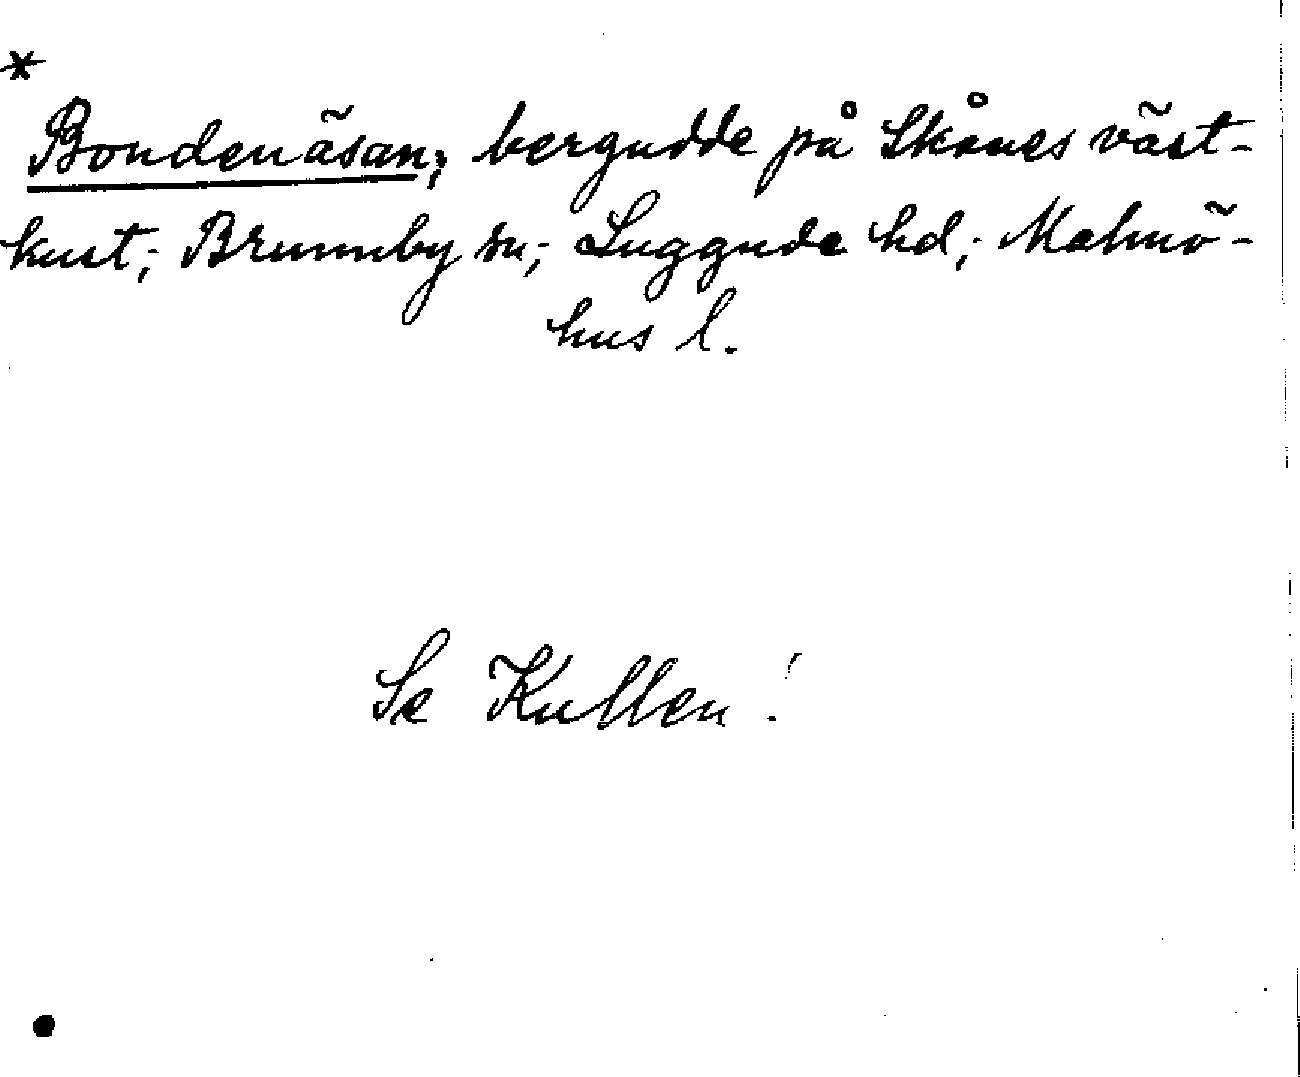 *
Bondenäsan; bergudde på Skånes väst-
kust; Brunnby sn; Luggude hd; Malmö-
hus l.
Se Kullen!